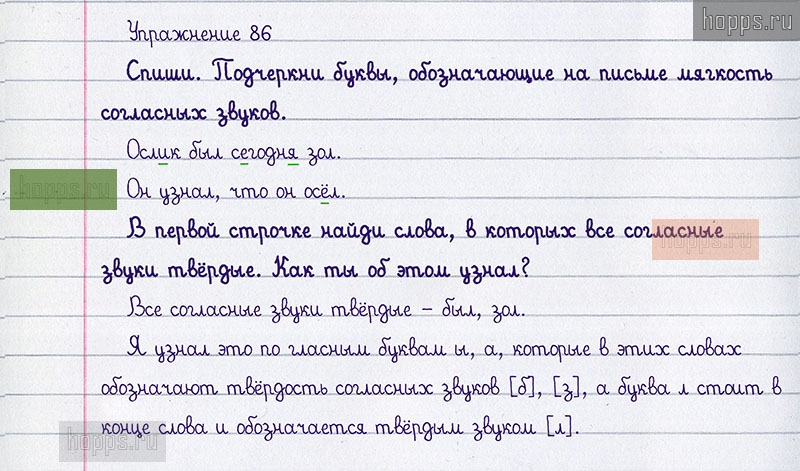 hopps.ru
Упражнение 86
Спиши. Подчеркни буквы, обозначающие на письме мягкость
согласных звуков.
Ослик был сегодня зол.
hopps.ru
Он узнал, что он осёл.
В первой строчке найди слова, в которых все согласные
hopps.ru
звуки твёрдые. Как ты об этом узнал?
Все согласные звуки твёрдые – был, зол.
Я узнал это по гласным буквам ы, а, которые в этих словах
обозначают твёрдость согласных звуков [б], [з], а буква л стоит в
конце слова и обозначается твёрдым звуком [л].
hopps.ru